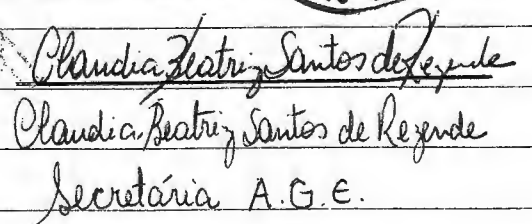 Claudia Beatriz Santos de Rezende
Claudia Beatriz Santos de Rezende
Secretária A.G.E.